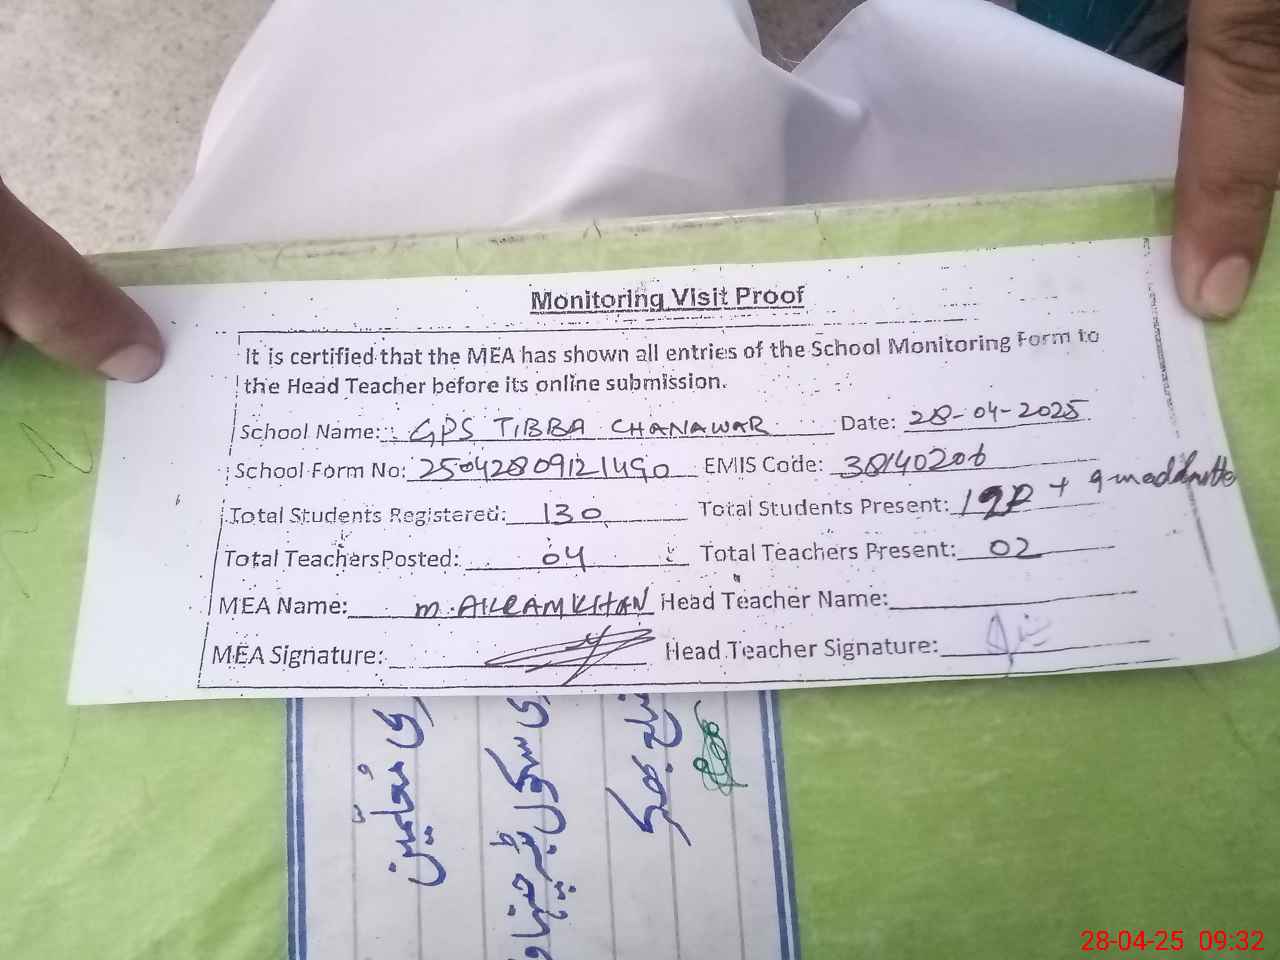 Monitoring Visit Proof
It is certified that the MEA has shown all entries of the School Monitoring Form to
the Head Teacher before its online submission.
School Name: GPS TIBBA CHANAWAR Date: 28-04-2025
School Form No: 25042809121490 EMIS Code: 38140206
Total Students Registered: 130 Total Students Present:
Total Teachers Posted: 04 Total Teachers Present: 02
MEA Name: M. AKRAM KHAN Head Teacher Name:
MEA Signature: Head Teacher Signature:
معائینہ
ضلع بھکر
28-04-25 09:32